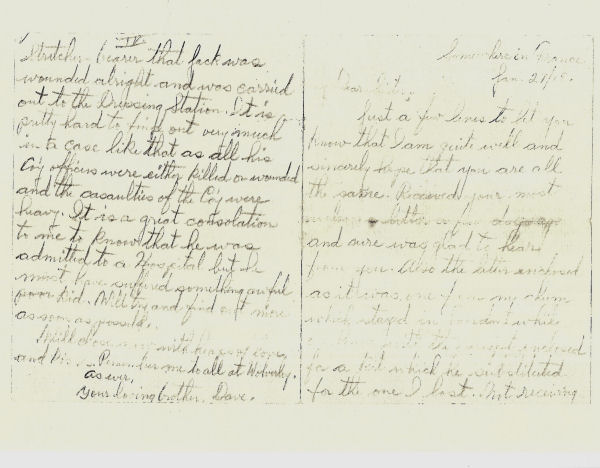 IV
Stretcher-bearer that Jack was
wounded alright and was carried
out to the Dressing Station. It is
pretty hard to find out very much
in a case like that as all his
Coy officers were either killed or wounded
and the casualties of the Coy were
heavy. It is a great consolation
to me to know that he was
admitted to a Hospital but he
must have suffered something awful
poor kid. Will try and find out more
as soon as possible.
I will close now with love
and Remember me to all at Wolverley.
as ever,
Your loving brother, Dave.
Somewhere in France
Jan. 21
Dear
Just a few lines to let you
know that I am quite well and
sincerely hope that you are all
the same. Received your most
welcome letter
and sure was glad to hear
from you. Also the letter enclosed
as it was one from my chum
which stayed in while
enclosed
for a which he substituted
for the one I lost. Not receiving